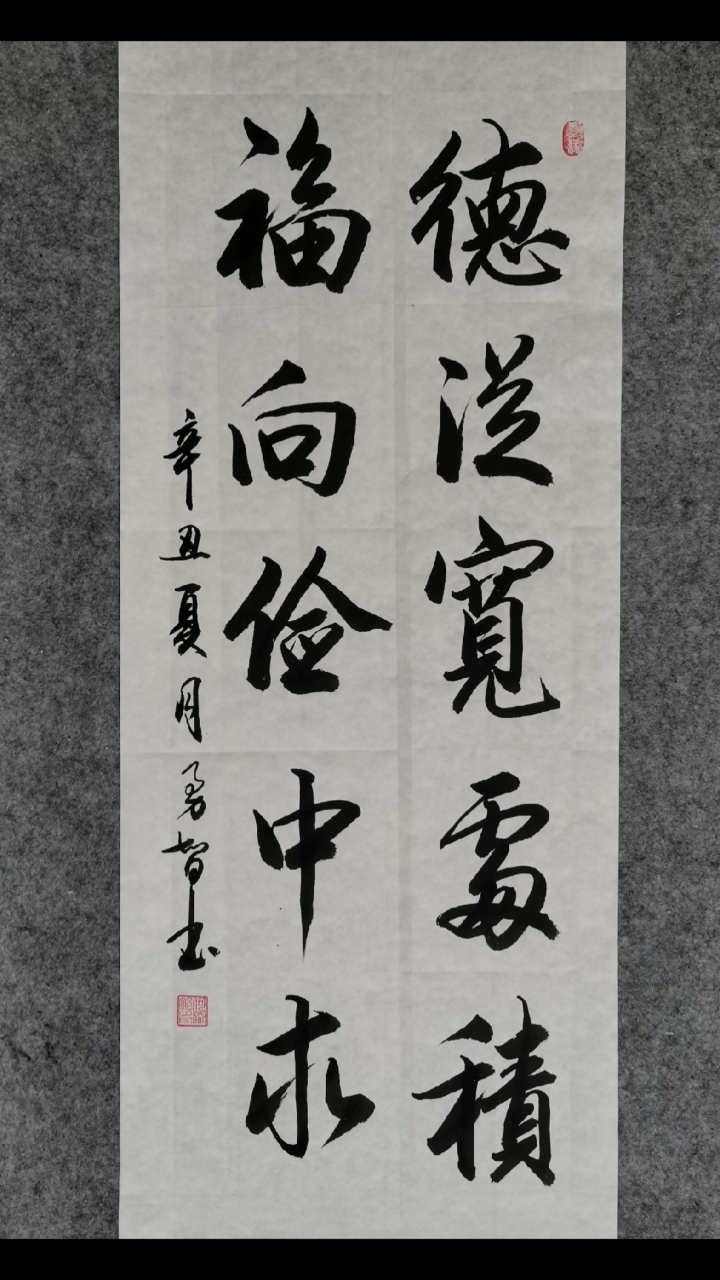 德從寬處積
福向儉中求
辛丑夏月勇智书